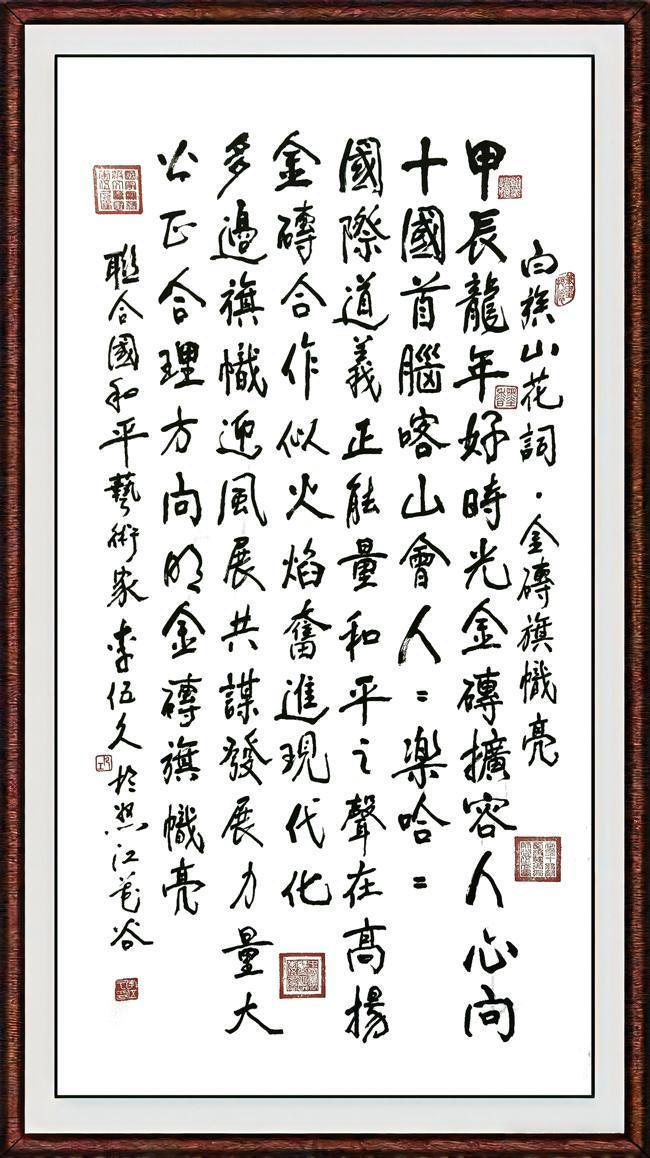 白族山花詞·金磚旗幟亮
甲辰龍年好時光金磚擴容人心向
十國首腦喀山會人〻樂哈〻
國際道義正能量和平之聲在高揚
金磚合作似火焰奮進現代化
多邊旗幟迎風展共謀發展力量大
公正合理方向明金磚旗幟亮
聯合國和平藝術家李伍久於怒江花谷